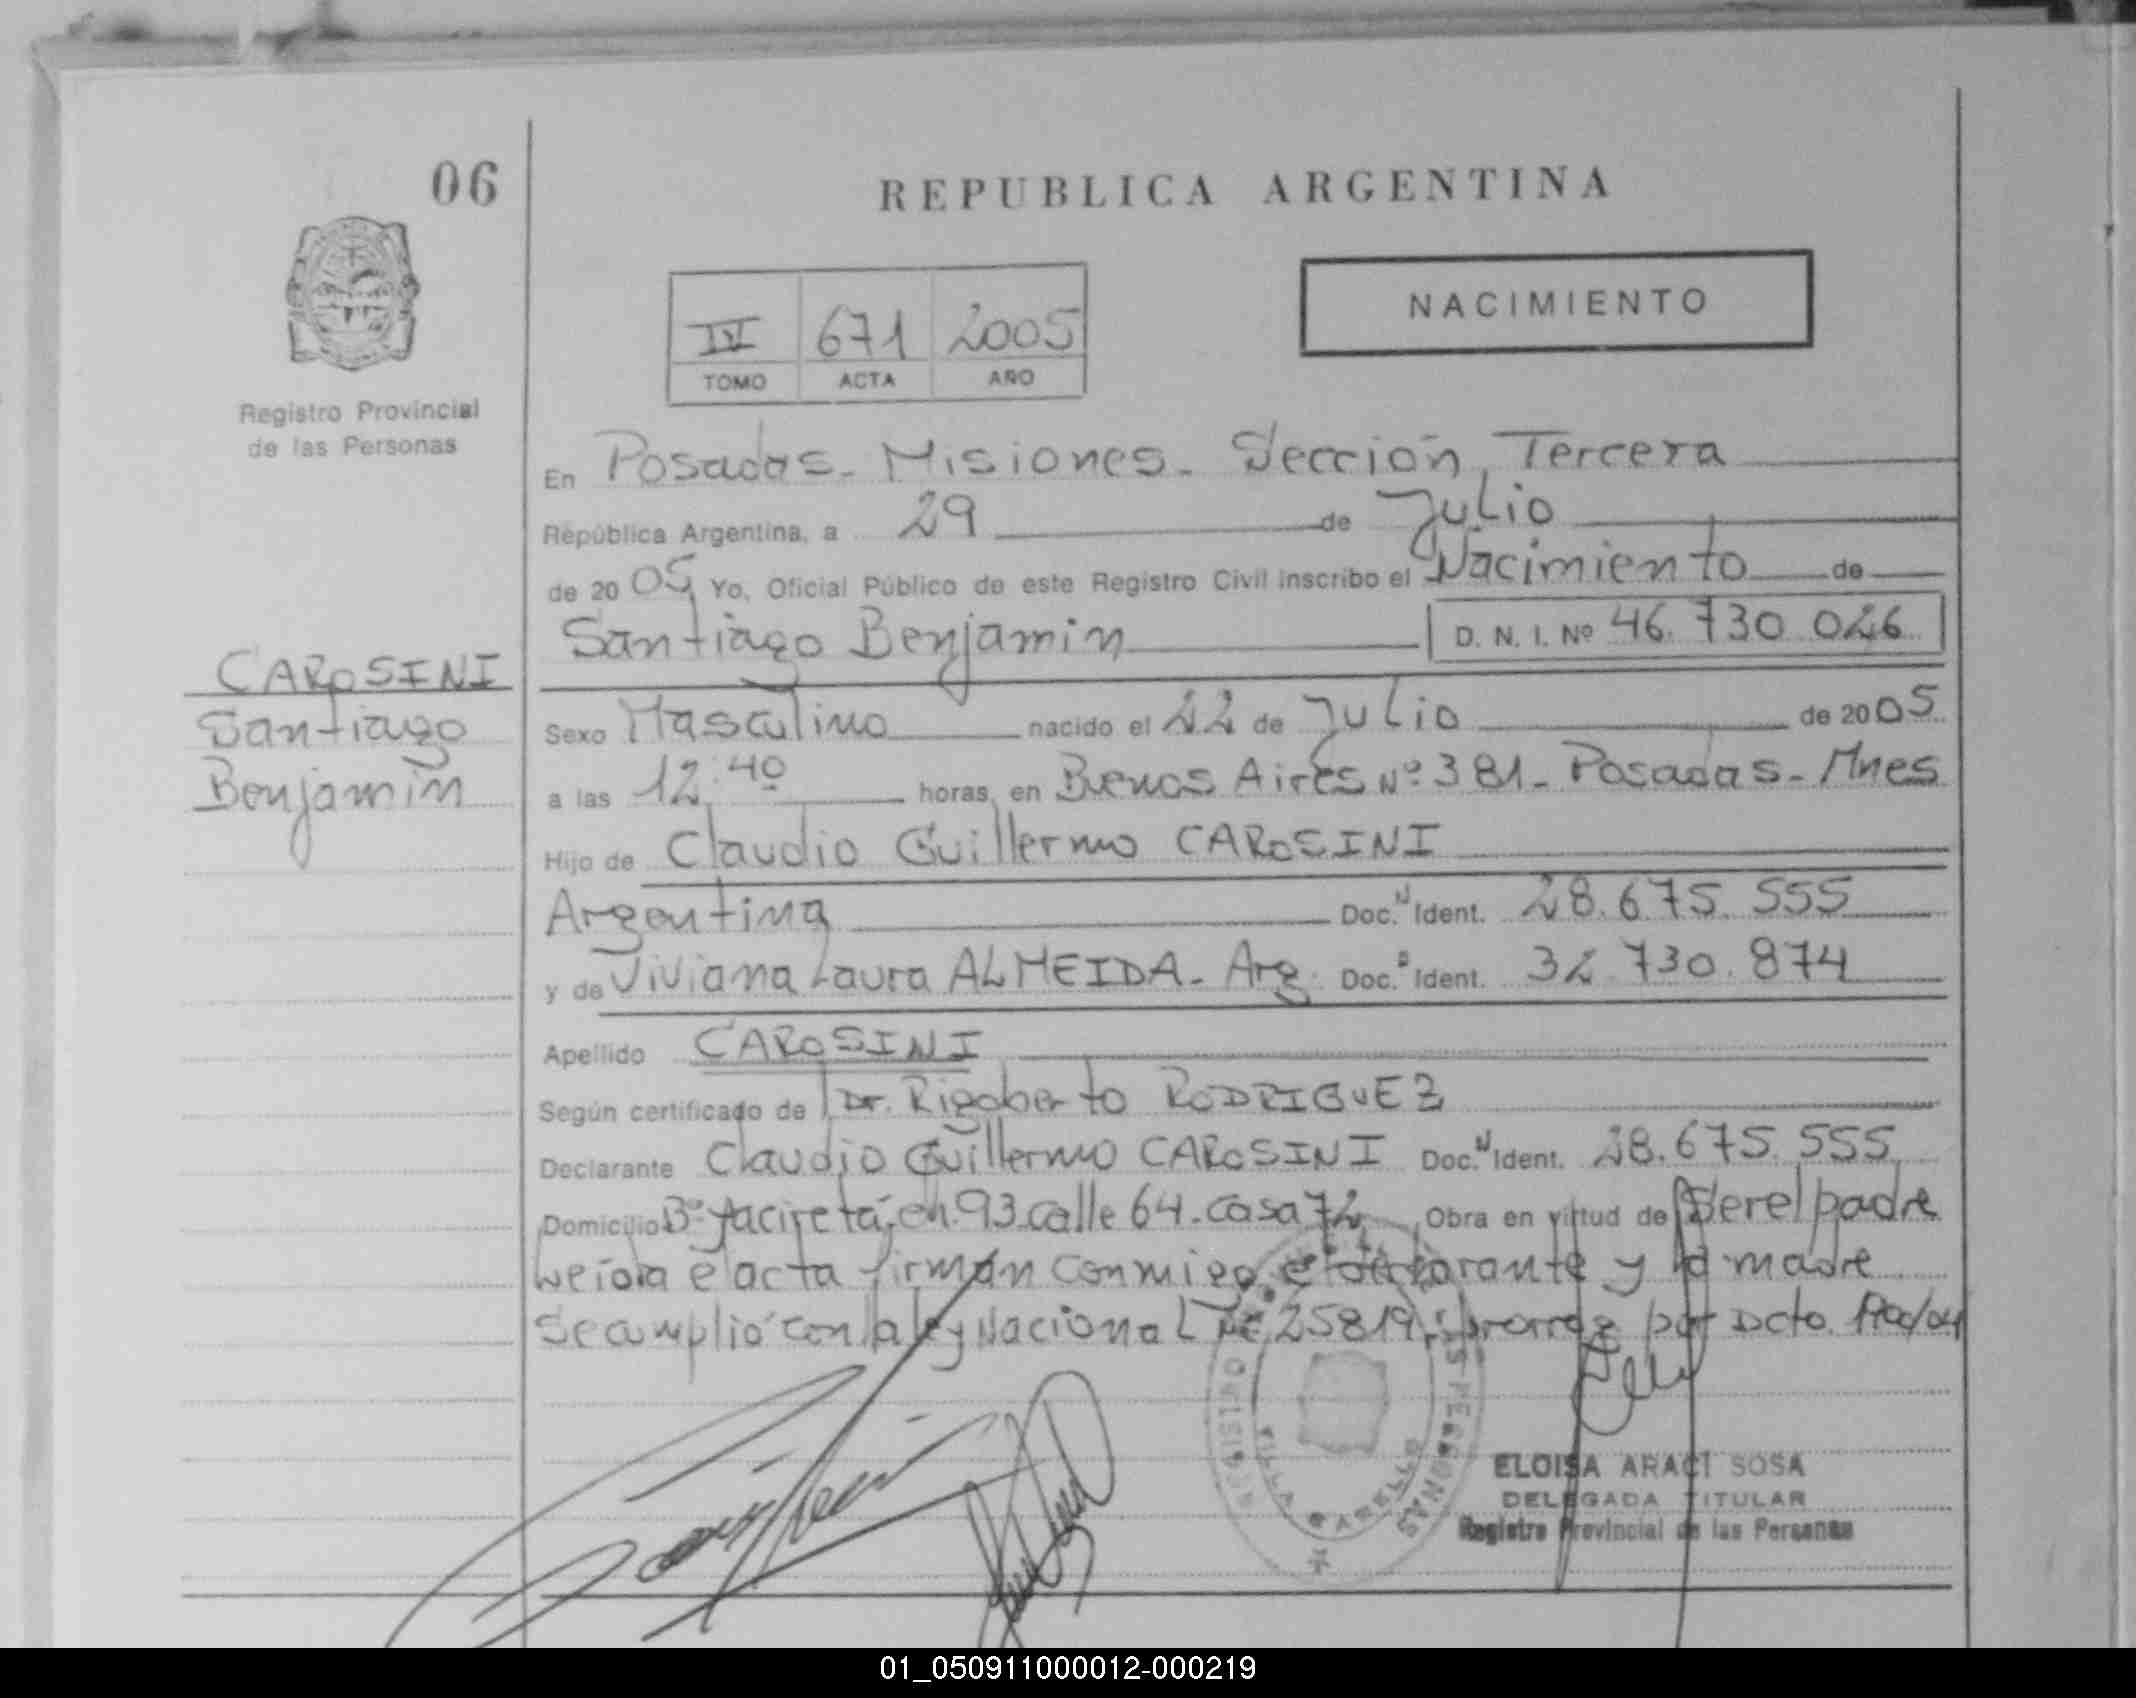 06
REPUBLICA ARGENTINA
NACIMIENTO
IV 671 2005
TOMO ACTA AÑO
Registro Provincial
de las Personas
En Posadas - Misiones - Sección Tercera
República Argentina, a 29 de Julio
de 2005 Yo, Oficial Público de este Registro Civil inscribo el Nacimiento de
Santiago Benjamin D. N. I. Nº 46.730.026
CAROSINI
Santiago
Benjamin
Sexo Masculino nacido el 22 de Julio de 2005
a las 12:40 horas, en Buenos Aires Nº 381 - Posadas - Mnes
Hijo de Claudio Guillermo CAROSINI
Argentina Doc. Ident. 28.675.555
y de Viviana Laura ALMEIDA - Arg. Doc. Ident. 32.730.874
Apellido CAROSINI
Según certificado de Dr. Rigoberto RODRIGUEZ
Declarante Claudio Guillermo CAROSINI Doc. Ident. 28.675.555
Domicilio Bº Yacireta, ch. 93 calle 64 - casa 72 Obra en virtud de Ser el padre
leida el acta firman conmigo el declarante y la madre
Se cumplió con la ley Nacional Nº 25819, por Dcto.
REGISTRO PERSONAS
VILLA CABELLO
ELOISA ARACI SOSA
DELEGADA TITULAR
Registro Provincial de las Personas
01_050911000012-000219